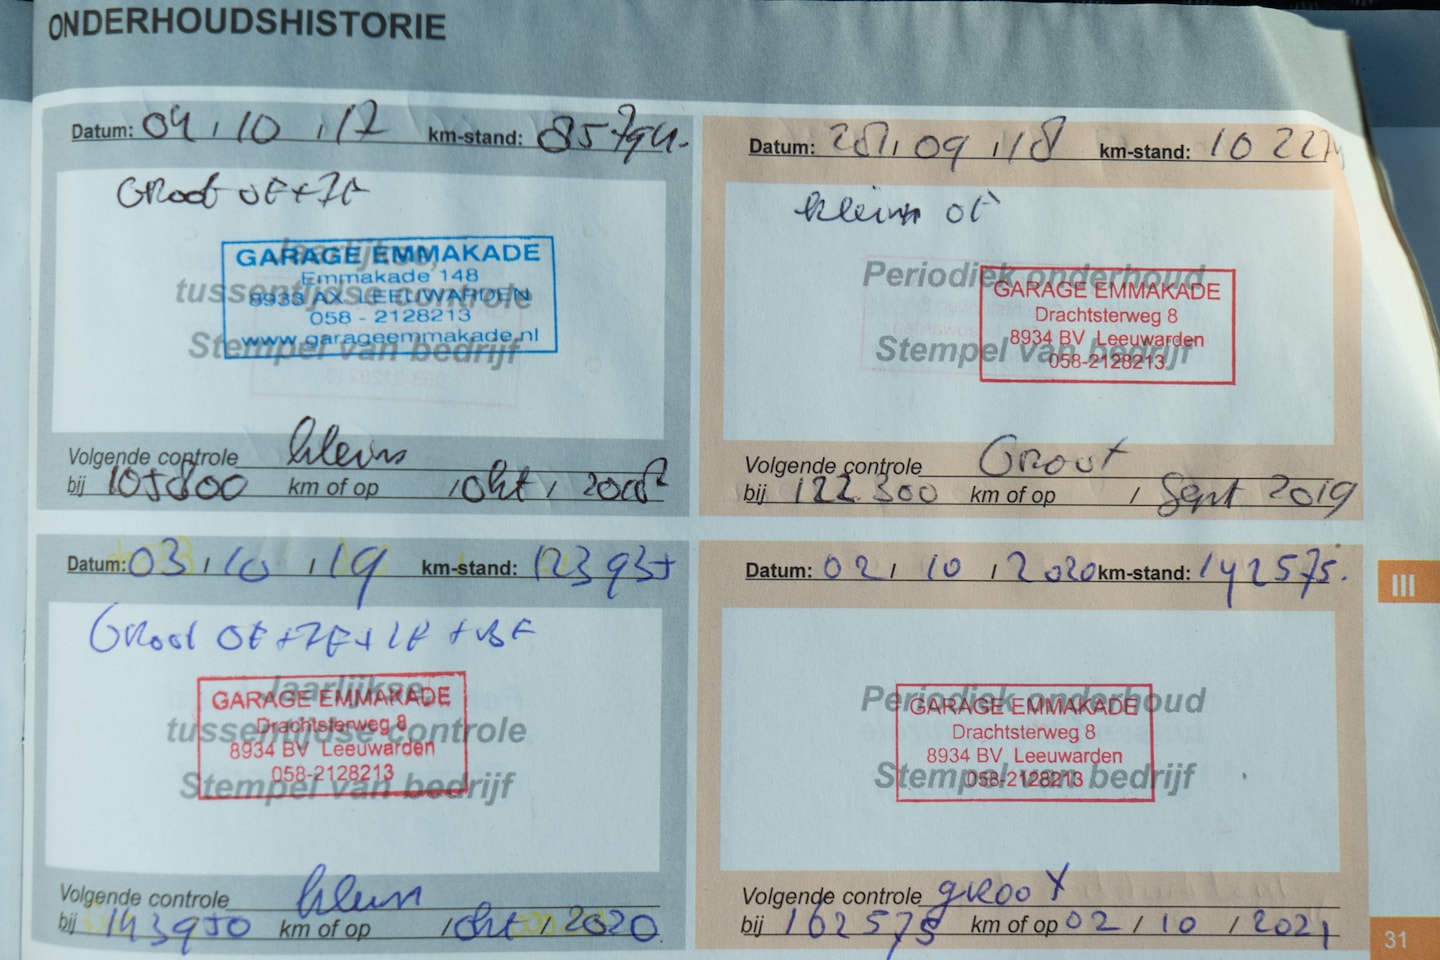 ONDERHOUDSHISTORIE
Datum: 04 / 10 / 17 km-stand: 85794.
Groot OF+IF
Jaarlijkse,
tussentijdse controle
Stempel van bedrijf
GARAGE EMMAKADE
Emmakade 148
8933 AX LEEUWARDEN
058 - 2128213
www.garageemmakade.nl
Volgende controle klein
bij 105800 km of op / okt / 2008
Datum: 28 / 09 / 18 km-stand:
klein OF
Periodiek onderhoud
Stempel van bedrijf
GARAGE EMMAKADE
Drachtsterweg 8
8934 BV Leeuwarden
058-2128213
Volgende controle Groot
bij 122.300 km of op / Sept 2019
Datum: 03 / 10 / 19 km-stand: 123935
Groot OF+IF+LF+BF
Jaarlijkse,
tussentijdse controle
Stempel van bedrijf
GARAGE EMMAKADE
Drachtsterweg 8
8934 BV Leeuwarden
058-2128213
Volgende controle klein
bij 143950 km of op / okt / 2020
Datum: 02 / 10 / 2020 km-stand: 142575.
Periodiek onderhoud
Stempel van bedrijf
GARAGE EMMAKADE
Drachtsterweg 8
8934 BV Leeuwarden
058-2128213
Volgende controle groot
bij 162575 km of op 02 / 10 / 2021
III
31